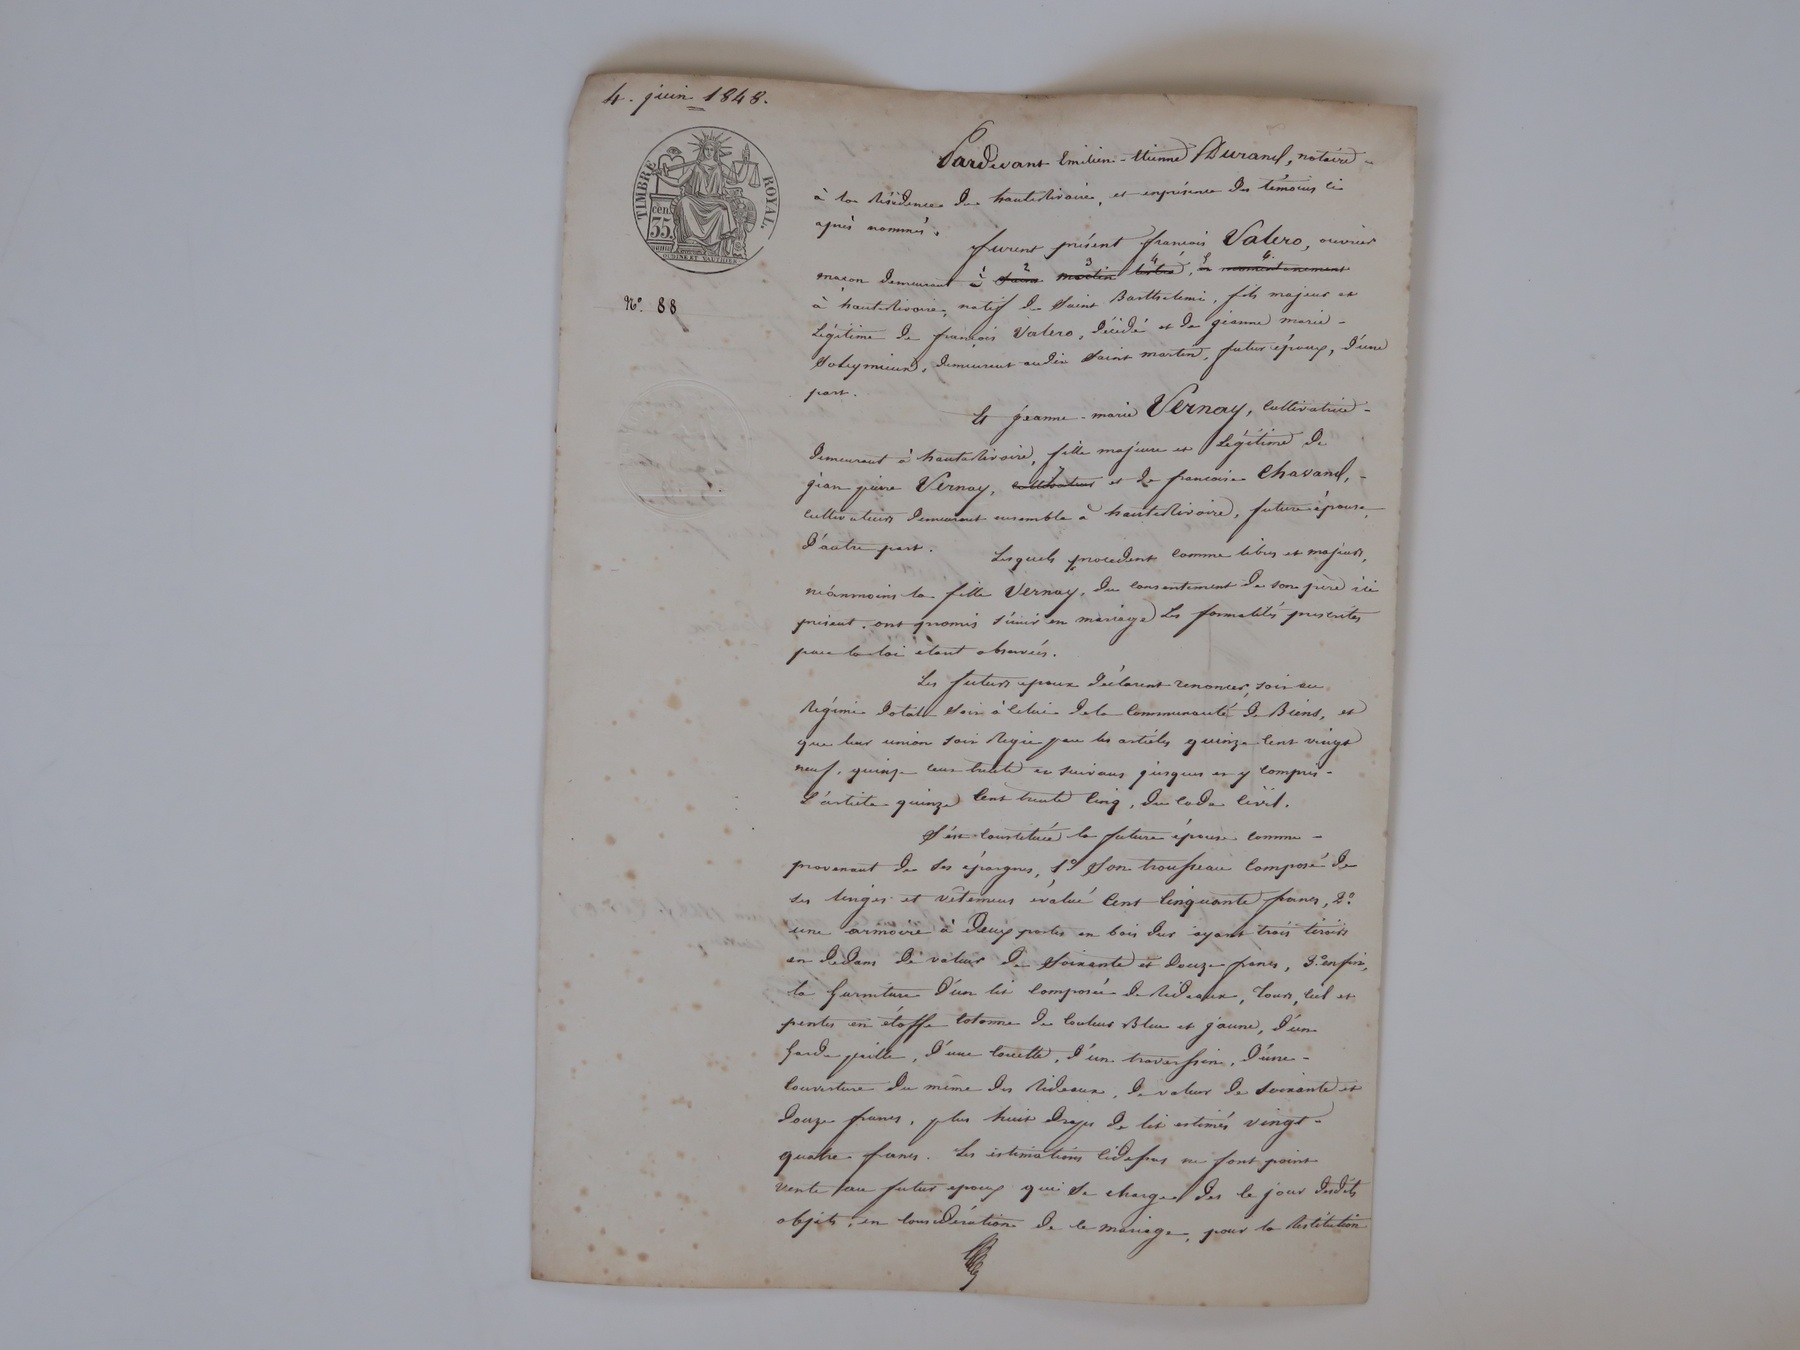 4. juin 1848.
TIMBRE ROYAL.
cen.
35.
Nº. 88
Pardevant Emilien-Etienne Durand, notaire
à la Résidence de hauterivoire, et en présence des témoins ci
après nommés.
furent présent françois Valero, ouvrier
macon demeurant à 1 saint 2 martin 3 4, 5 en momentanement 6
à hauterivoire, natif de Saint Barthelemi, fils majeur et
Légitime de françois Valero, décédé et de jeanne marie
Soleymieux, demeurant audit Saint martin, futur époux, d'une
part.
Et jeanne-marie Vernay, cultivatrice
demeurant à hauterivoire, fille majeure et Légitime de
jean pierre Vernay, 7 cultivateur et de francoise Chavand,
cultivateurs demeurant ensemble à hauterivoire, future épouse,
D'autre part.
Lesquels procedent comme libres et majeurs,
néanmoins la fille Vernay, du consentement de son père ici
présent, ont promis s'unir en mariage Les formalités prescrites
par la loi etant observées.
Les futurs epoux déclarent renoncer, soit au
Régime dotal soit à Celui de la Communauté de Biens, et
que leur union soit Régie par les articles quinze Cent vingt
neuf, quinze cent trente et suivans jusques et y compris
L'article quinze Cent trente Cinq, du Code Civil.
S'est Constituée la future épouse comme
provenant de ses épargnes, 1º Son trousseau Composé de
ses linges et vêtemens évalué Cent Cinquante francs, 2º
une armoire à deux portes en bois dur ayant trois tiroirs
en dedans de valeur de Soixante et douze francs, 3º enfin,
la garniture d'un lit Composée de Rideaux, tours, Ciel et
pentes en étoffe Cotonne de Couleur Blue et jaune, d'un
garde paille, d'une Couette, d'un traversin, d'une
Couverture du même des Rideaux, de valeur de Soixante et
douze francs, plus huit draps de lit estimés vingt
quatre francs. Les estimations Cidessus ne font point
vente au futur epoux qui se charge des le jour desdits
objets, en Considération de le mariage, pour la Restitution